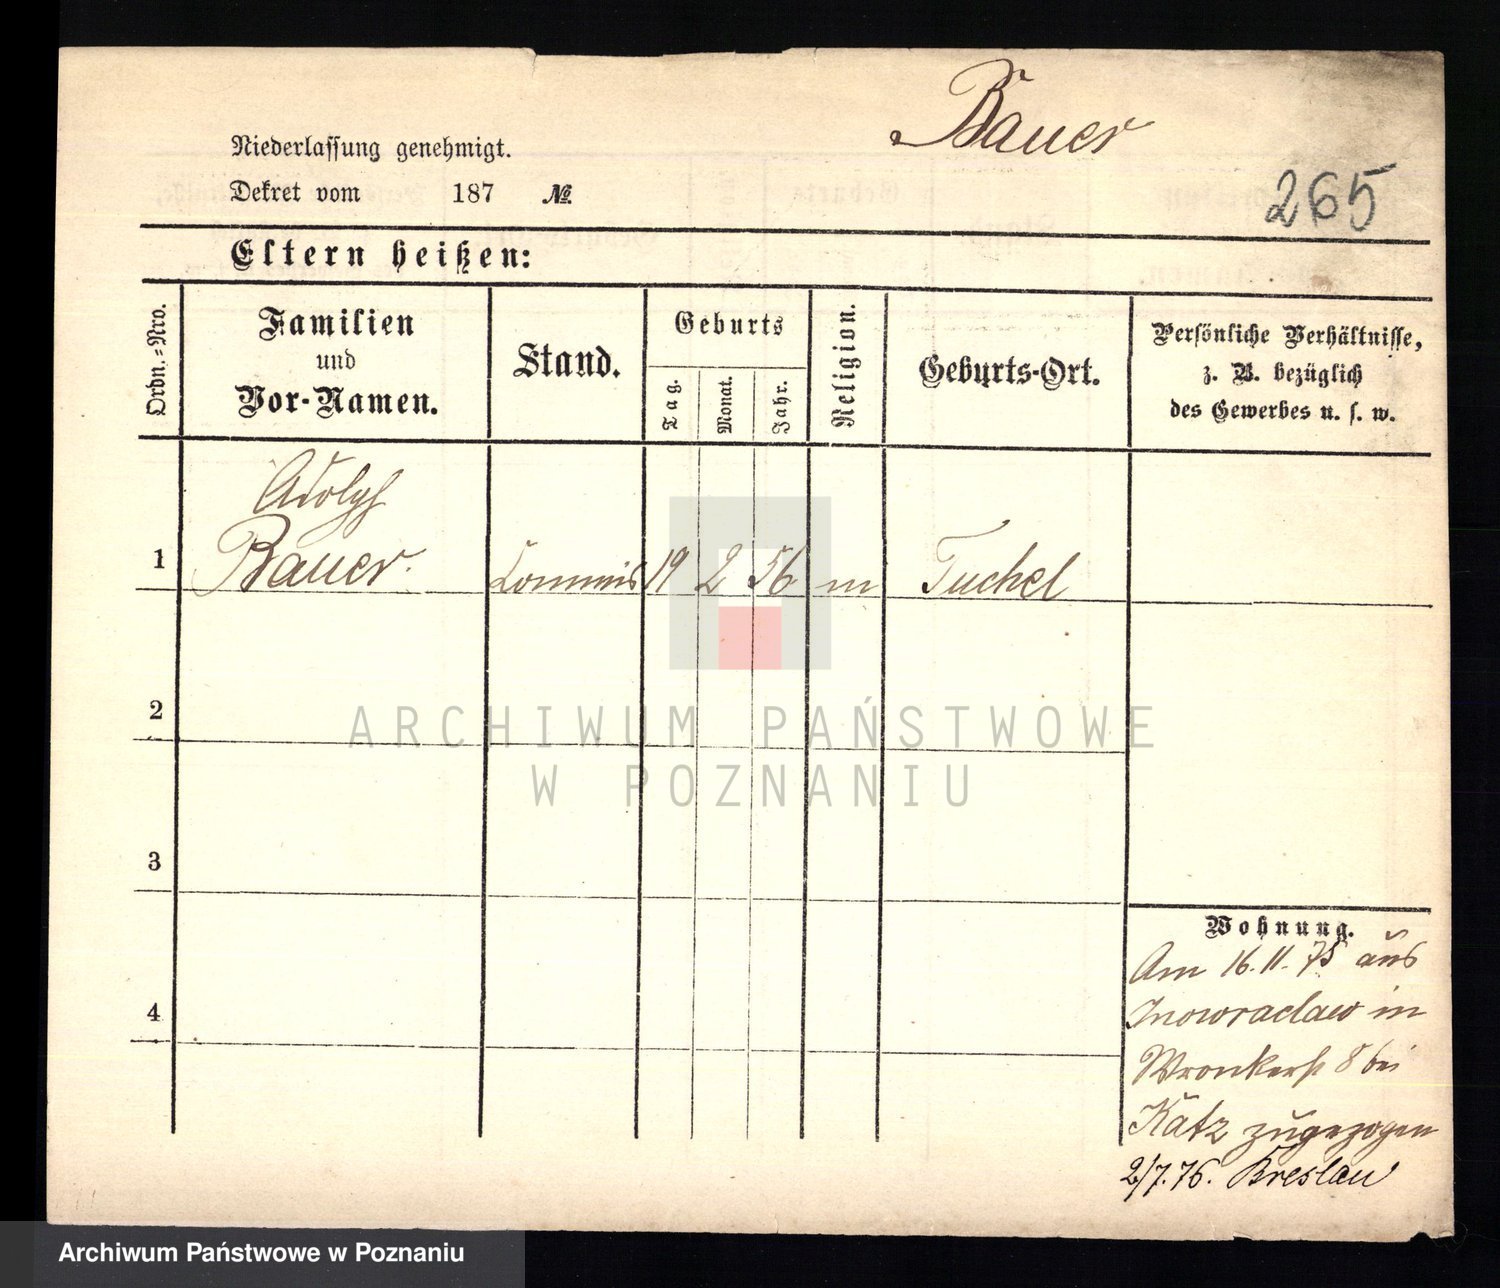 Bauer
265
Niederlassung genehmigt.
Dekret vom 187 №
Eltern heißen:
Ordn.-Nro.
Familien
und
Vor-Namen.
Stand.
Geburts
Tag.
Monat.
Jahr.
Religion.
Geburts-Ort.
Persönliche Verhältnisse,
z. B. bezüglich
des Gewerbes u. s. w.
Adolph
1 Bauer. Commis 19 2 56 m Tuchel
2
3
4
Wohnung.
Am 16.11.75 aus
Inowraclaw in
Wronkerst 8 bei
Katz zugezogen
2/7.76. Breslau
ARCHIWUM PAŃSTWOWE
W POZNANIU
Archiwum Państwowe w Poznaniu